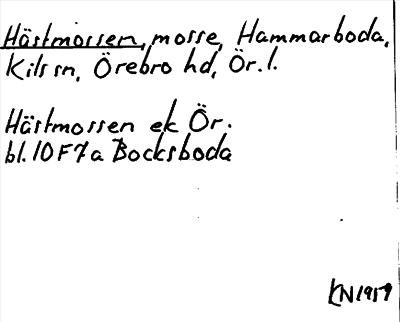 Hästmossen, mosse, Hammarboda,
Kils sn, Örebro hd, Ör. l.
Hästmossen ek Ör.
bl. 10F7a Bocksboda
KN 1959